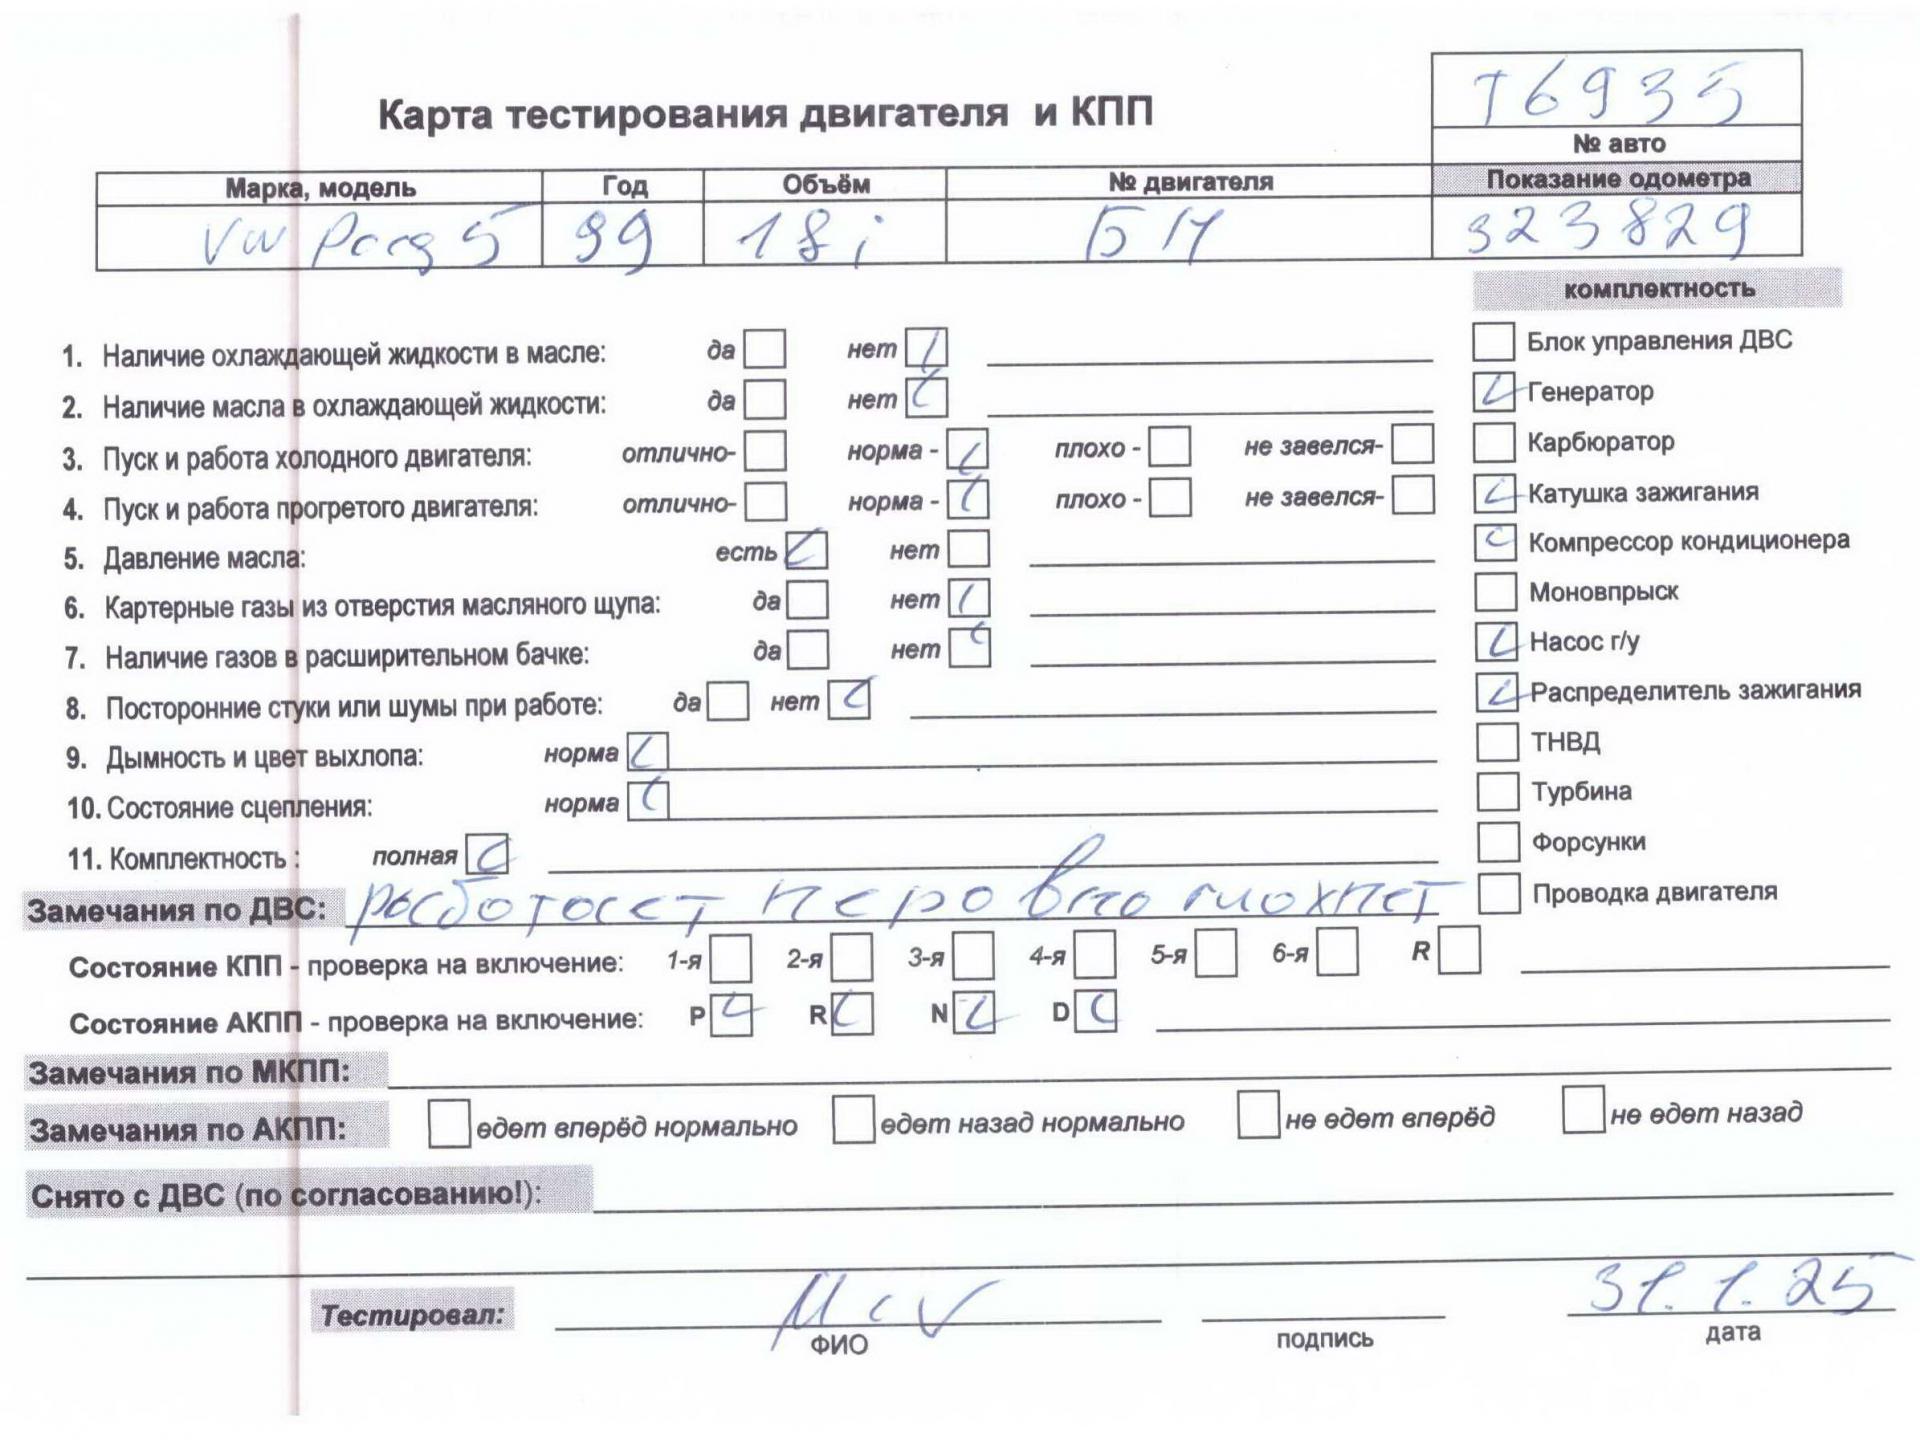 Т6935
Карта тестирования двигателя и КПП
№ авто
Марка, модель Год Объём № двигателя Показание одометра
VW 5 99 18i БН 323829
комплектность
1. Наличие охлаждающей жидкости в масле: да нет
Блок управления ДВС
2. Наличие масла в охлаждающей жидкости: да нет
Генератор
3. Пуск и работа холодного двигателя: отлично- норма - плохо - не завелся-
Карбюратор
4. Пуск и работа прогретого двигателя: отлично- норма - плохо - не завелся-
Катушка зажигания
5. Давление масла: есть нет
Компрессор кондиционера
6. Картерные газы из отверстия масляного щупа: да нет
Моновпрыск
7. Наличие газов в расширительном бачке: да нет
Насос г/у
8. Посторонние стуки или шумы при работе: да нет
Распределитель зажигания
9. Дымность и цвет выхлопа: норма
ТНВД
10. Состояние сцепления: норма
Турбина
11. Комплектность : полная
Форсунки
Замечания по ДВС: работает неровно глохнет
Проводка двигателя
Состояние КПП - проверка на включение: 1-я 2-я 3-я 4-я 5-я 6-я R
Состояние АКПП - проверка на включение: P R N D
Замечания по МКПП:
Замечания по АКПП: едет вперёд нормально едет назад нормально не едет вперёд не едет назад
Снято с ДВС (по согласованию!):
Тестировал: 31.1.25
ФИО подпись дата